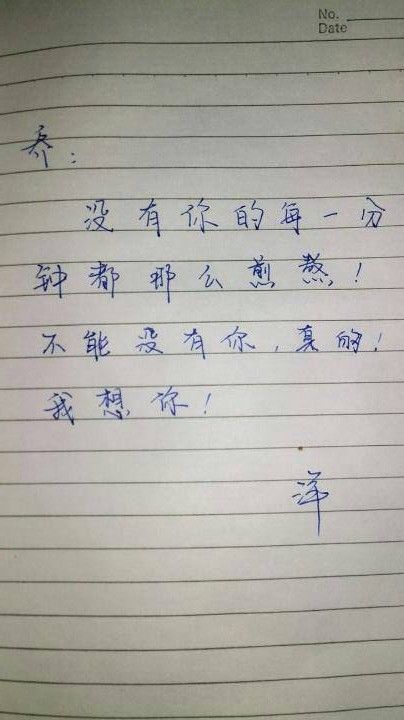 No.
Date
乔:
没有你的每一分
钟都那么煎熬!
不能没有你,真的!
我想你!
洋